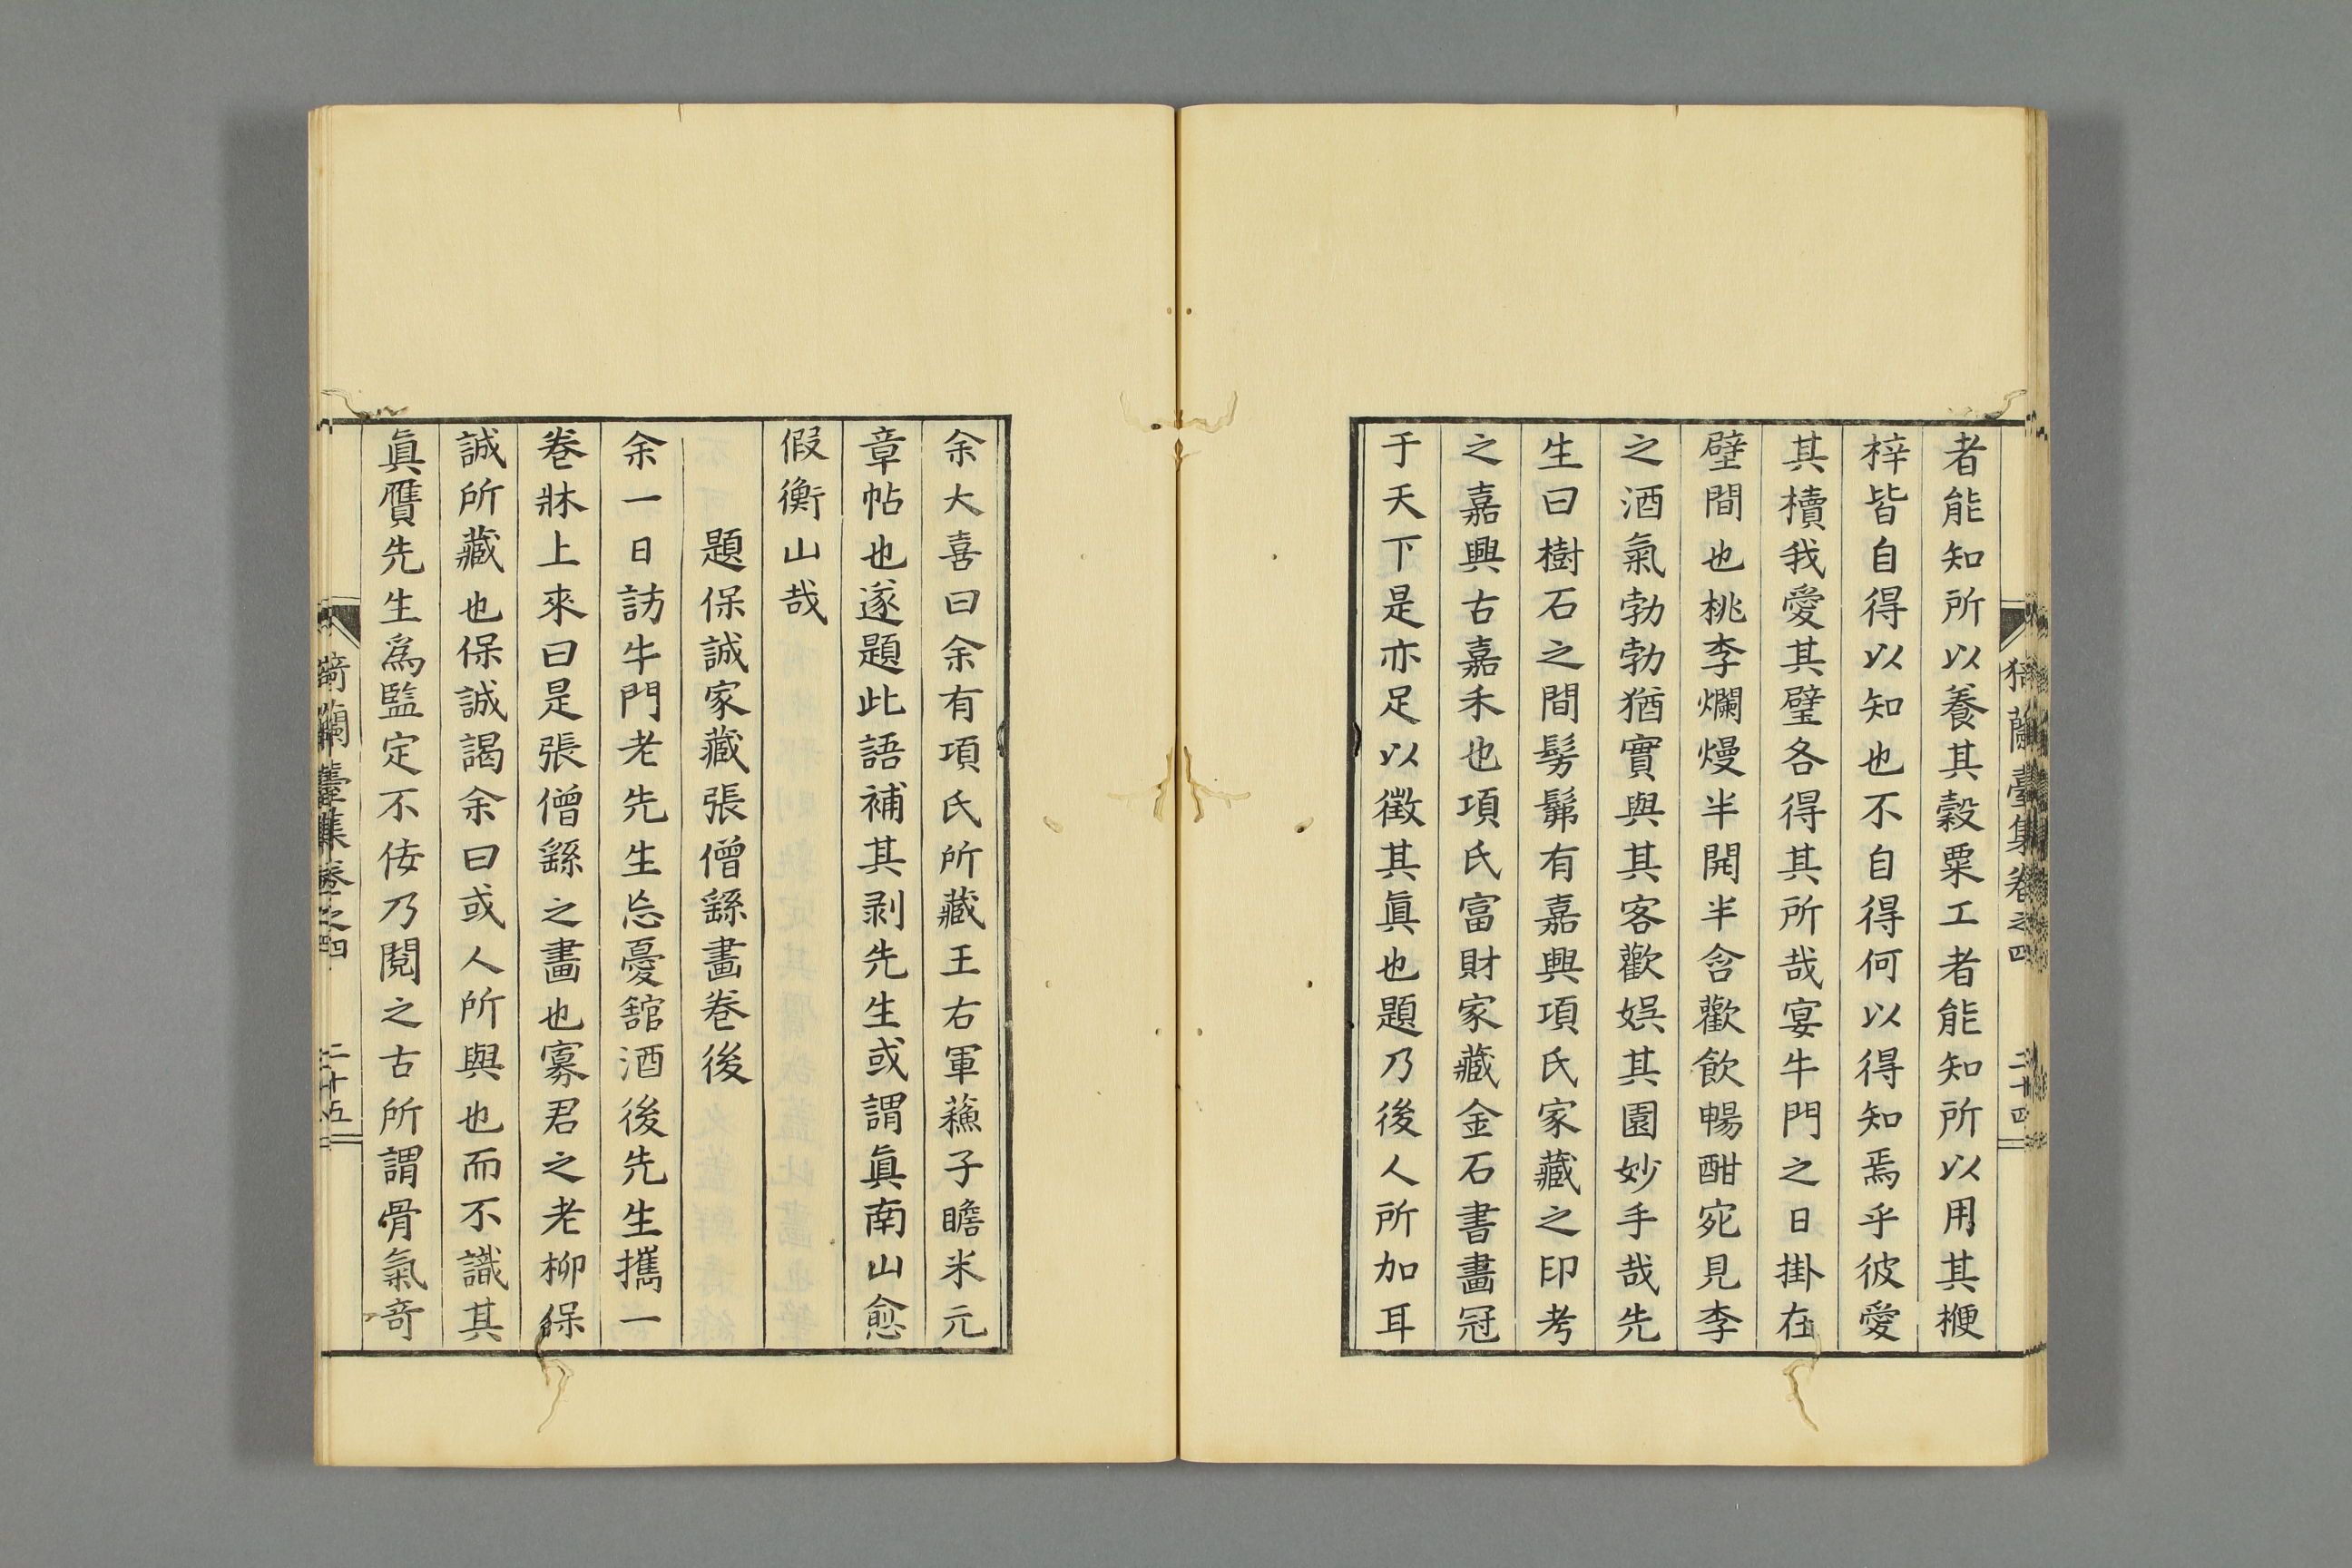 者能知所以養其穀粟工者能知所以用其楩
梓皆自得以知也不自得何以得知焉乎彼愛
其櫝我愛其璧各得其所哉宴牛門之日掛在
壁間也桃李爛熳半開半含歡飲暢酣宛見李
之酒氣勃勃猶實與其客歡娯其園妙手哉先
生曰樹石之間髣髴有嘉興項氏家藏之印考
之嘉興古嘉禾也項氏富財家藏金石書畵冠
于天下是亦足以徵其眞也題乃後人所加耳
蘭臺集卷之四 二十四
余大喜曰余有項氏所藏王右軍蘓子瞻米元
章帖也遂題此語補其剥先生或謂眞南山愈
假衡山哉
題保誠家藏張僧繇畵卷後
余一日訪牛門老先生忘憂舘酒後先生攜一
卷牀上來曰是張僧繇之畵也寡君之老柳保
誠所藏也保誠謁余曰或人所與也而不識其
眞贋先生爲監定不佞乃閲之古所謂骨氣竒
蘭臺集卷之四 二十五